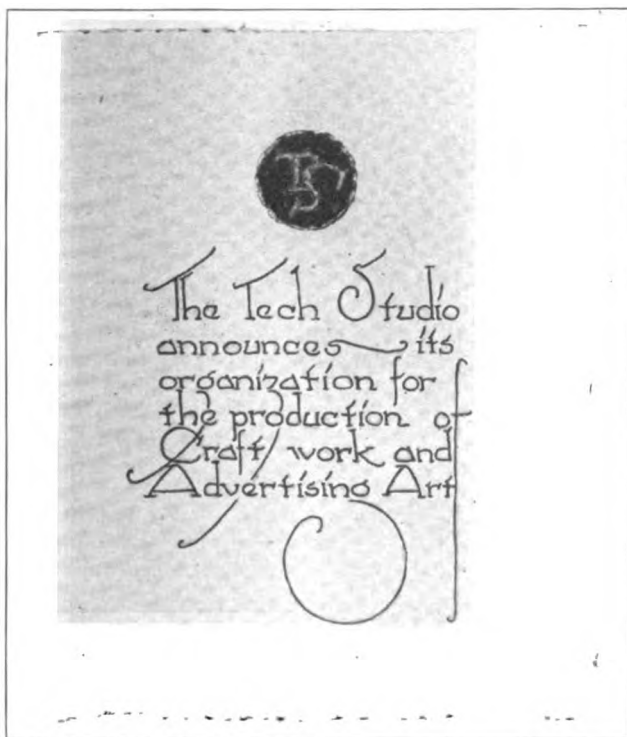 TS
The Tech Studio
announces its
organization for
the production of
Craft work and
Advertising Art